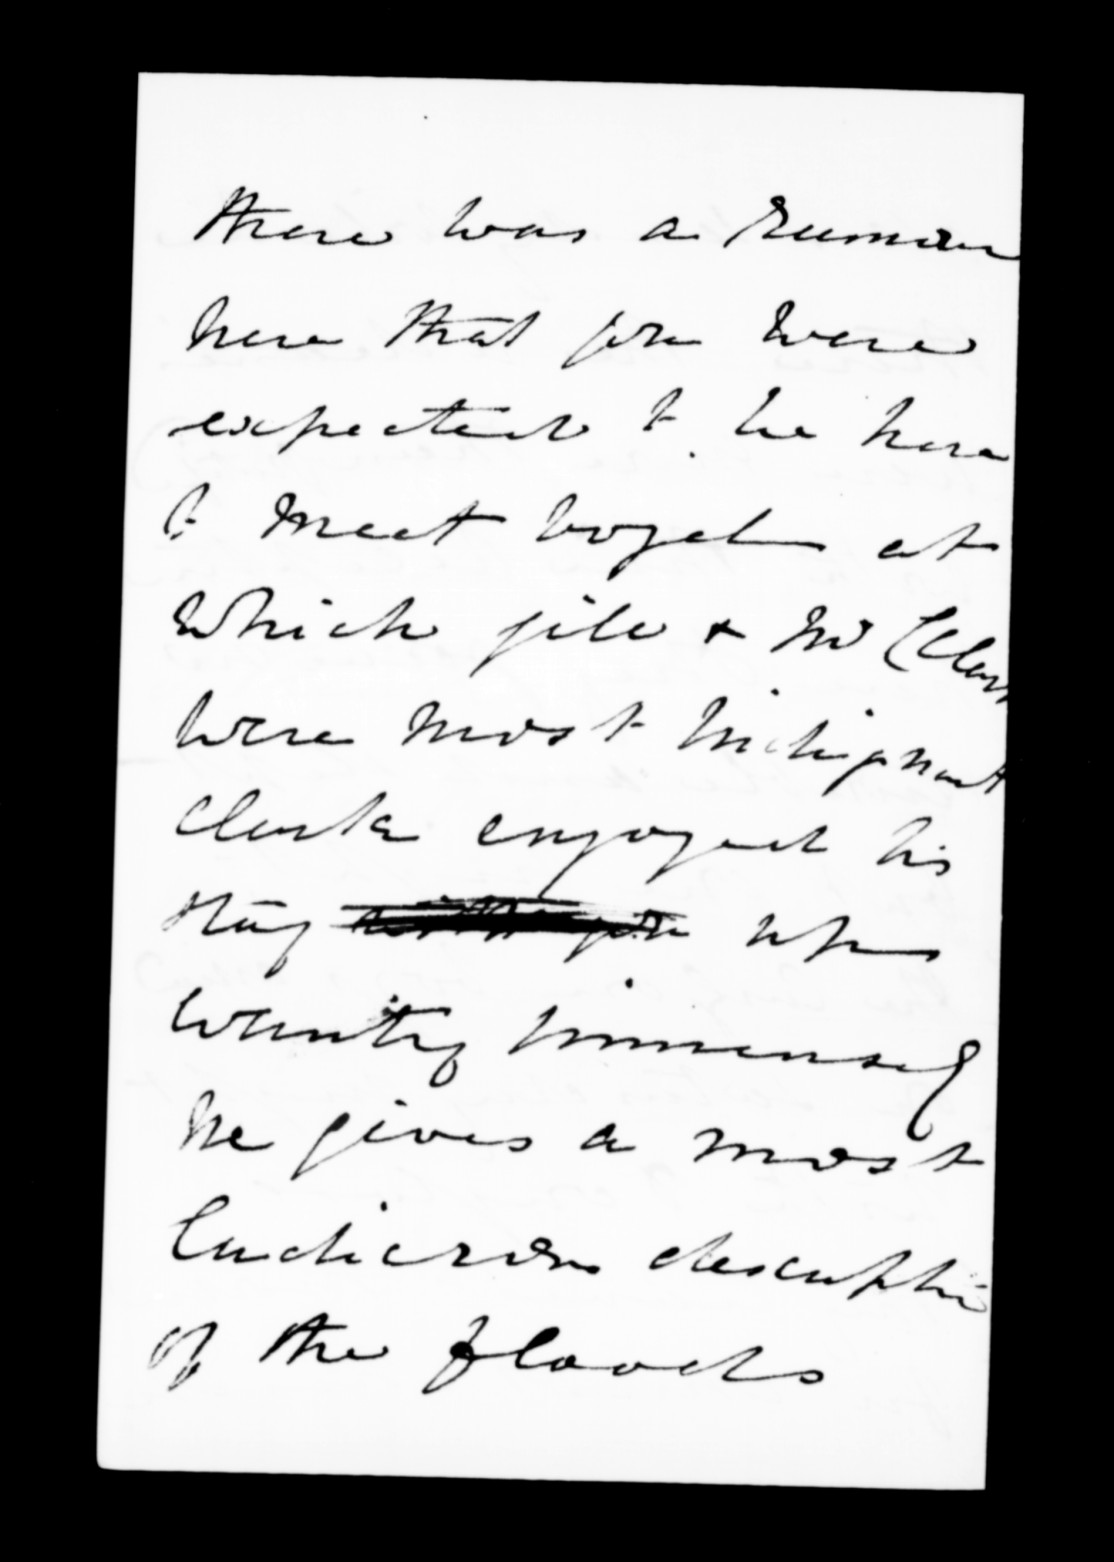 there was a rumour
here that you were
expected to be here
to meet Vogel at
which gile & Mr Clark
were most indignant
Clarke enjoyed his
stay with you up
country immensely
he gives a most
ludicrous description
of the floods